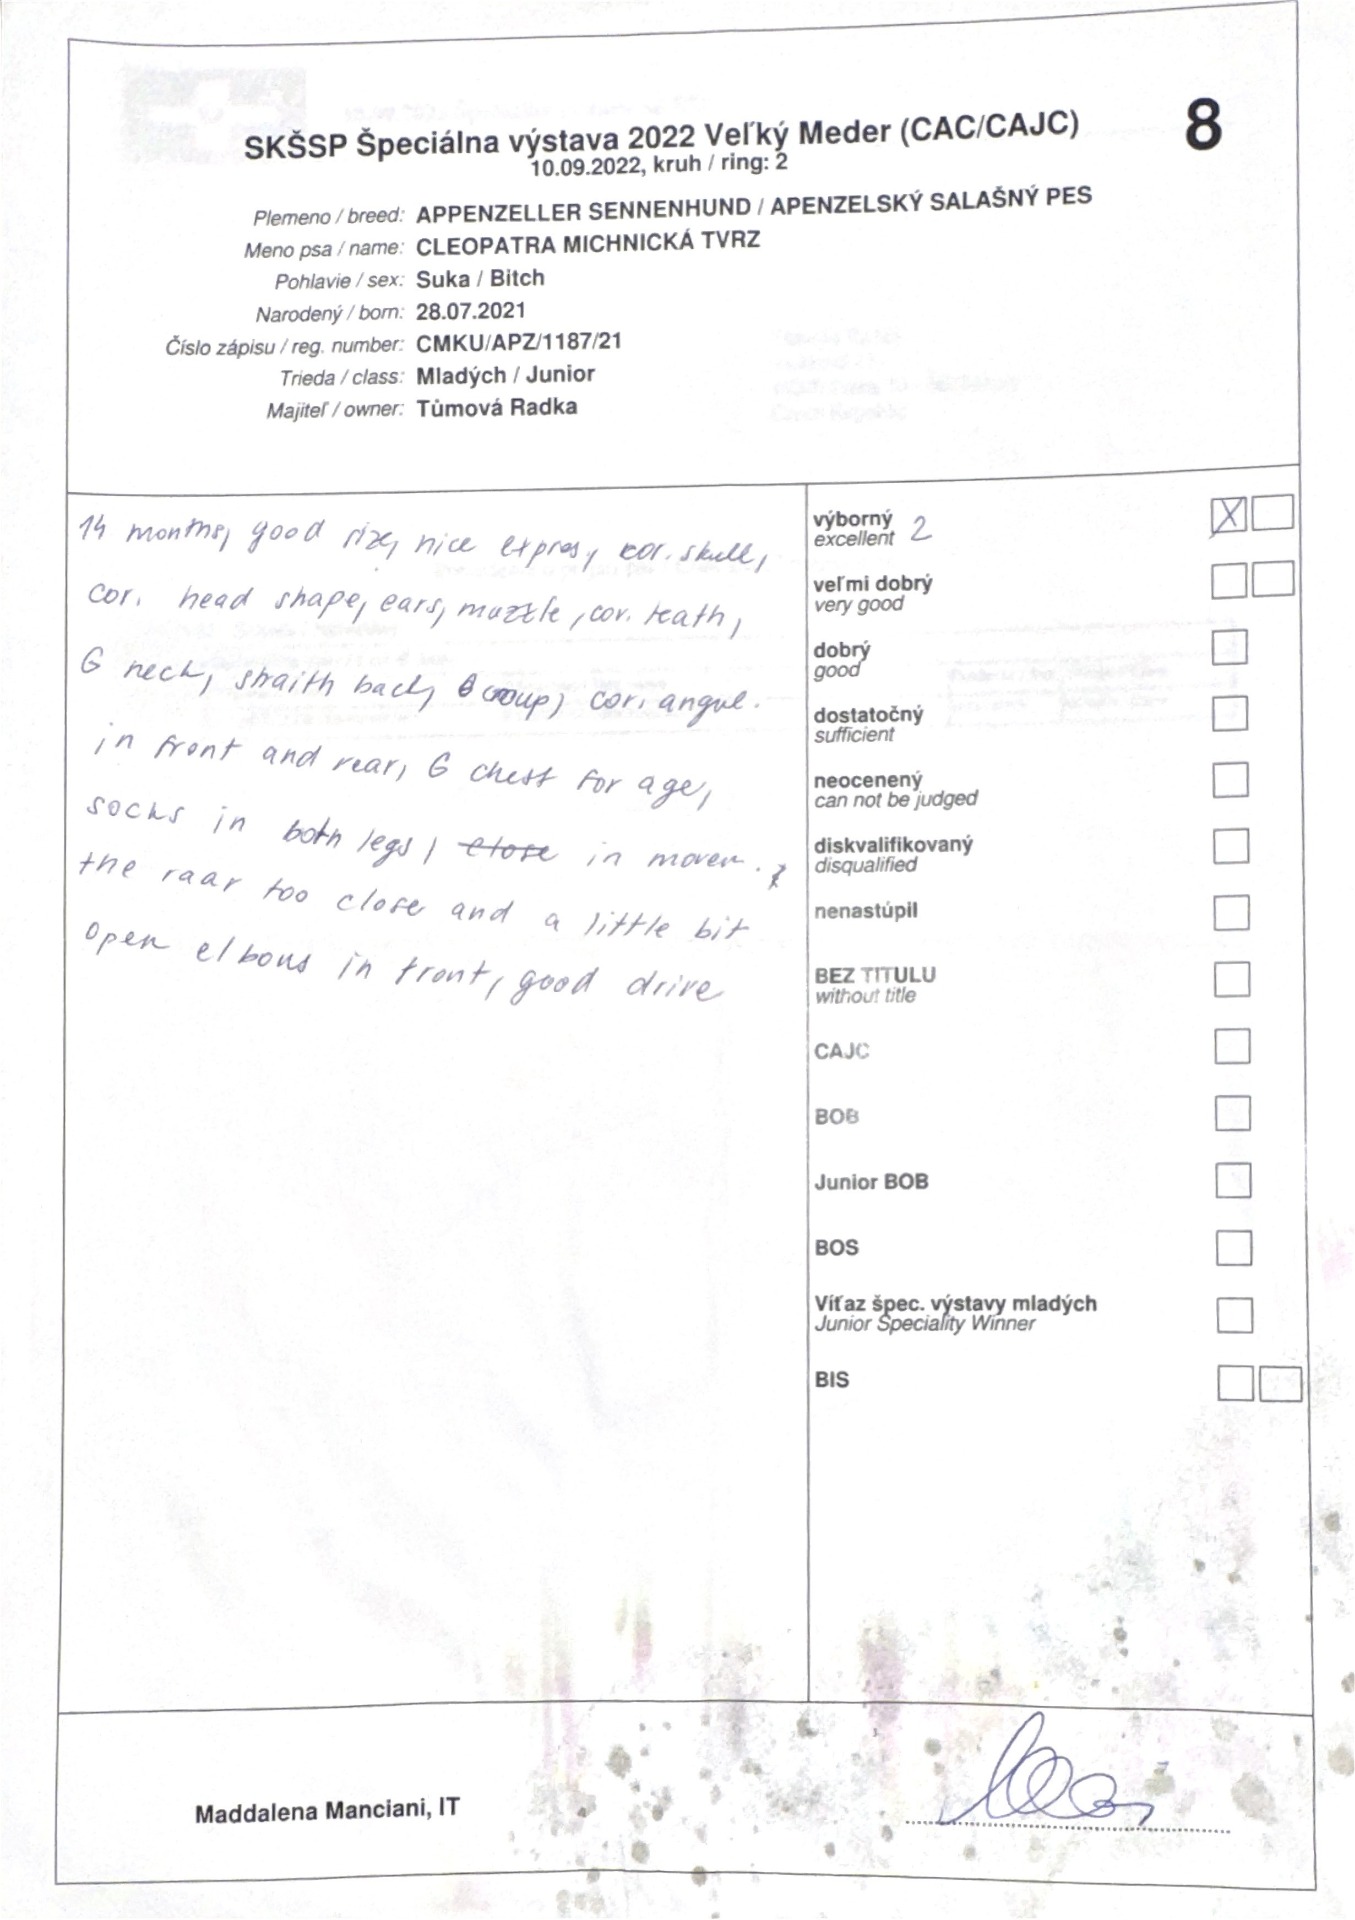 8
SKŠSP Špeciálna výstava 2022 Veľký Meder (CAC/CAJC)
10.09.2022, kruh / ring: 2
Plemeno / breed: APPENZELLER SENNENHUND / APENZELSKÝ SALAŠNÝ PES
Meno psa / name: CLEOPATRA MICHNICKÁ TVRZ
Pohlavie / sex: Suka / Bitch
Narodený / born: 28.07.2021
Číslo zápisu / reg. number: CMKU/APZ/1187/21
Trieda / class: Mladých / Junior
Majiteľ / owner: Tůmová Radka
14 months, good size, nice expres, cor. skull,
cor. head shape, ears, muzzle, cor. teath,
G neck, straith back, G croup, cor. angul.
in front and rear, G chest for age,
socks in both legs, close in movem.
the raar too close and a little bit
open elbows in front, good drive
výborný 2 X
excellent
veľmi dobrý
very good
dobrý
good
dostatočný
sufficient
neocenený
can not be judged
diskvalifikovaný
disqualified
nenastúpil
BEZ TITULU
without title
CAJC
BOB
Junior BOB
BOS
Víťaz špec. výstavy mladých
Junior Speciality Winner
BIS
Maddalena Manciani, IT